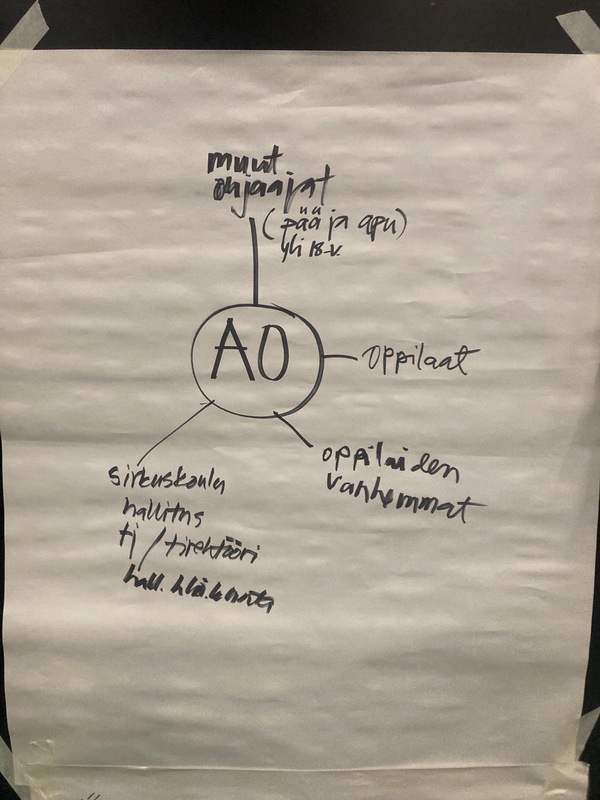 muut
ohjaajat
(pää ja apu)
yli 18-v.
AO
oppilaat
oppilaiden
vanhemmat
sirkuskoulu
hallitus
tj / tirehtööri
hall. hlö.kunta